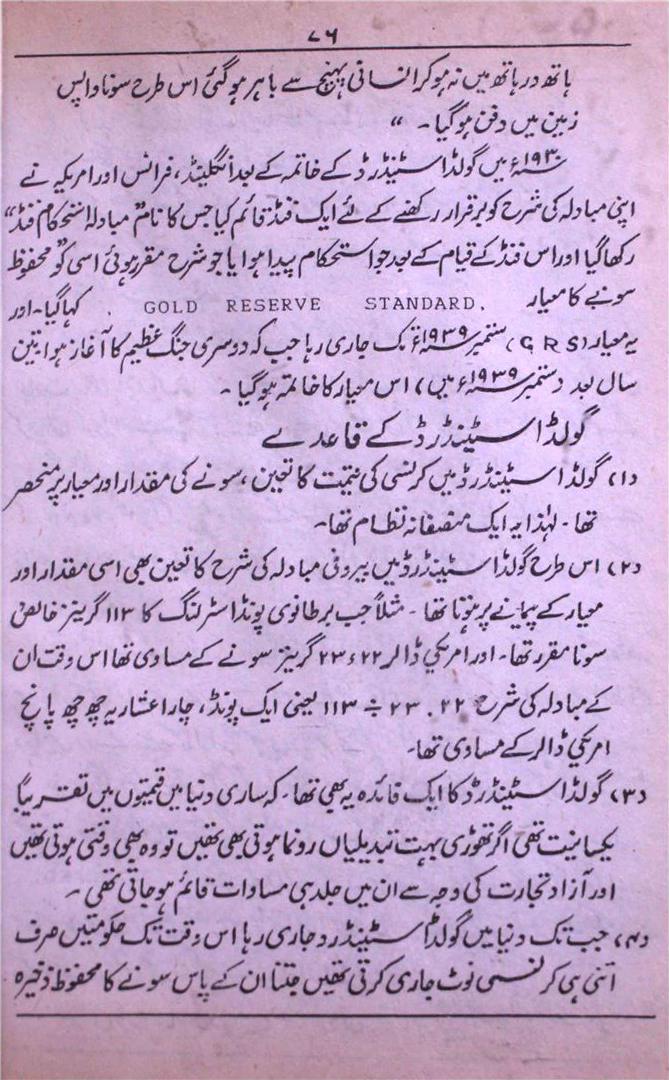 ۷۶
ہاتھ در ہاتھ میں نہ ہو کر انسانی پہنچ سے باہر ہو گئی اس طرح سونا واپس
زمین میں دفن ہو گیا ۔ “
۱۹۳۰ء میں گولڈ اسٹینڈرڈ کے خاتمہ کے بعد انگلینڈ، فرانس اور امریکہ نے
اپنی مبادلہ کی شرح کو برقرار رکھنے کے لئے ایک فنڈ قائم کیا جس کا نام ”مبادلہ استحکام فنڈ“
رکھا گیا اور اس فنڈ کے قیام کے بعد جو استحکام پیدا ہوا یا جو شرح مقرر ہوئی اسی کو ”محفوظ
سونے کا معیار GOLD RESERVE STANDARD. کہا گیا۔ اور
یہ معیار (GRS) ستمبر ۱۹۳۹ء تک جاری رہا جب کہ دوسری جنگ عظیم کا آغاز ہوا تین
سال بعد (ستمبر ۱۹۳۹ء میں) اس معیار کا خاتمہ ہو گیا ۔
گولڈ اسٹینڈرڈ کے قاعدے
(۱) گولڈ اسٹینڈرڈ میں کرنسی کی قیمت کا تعین، سونے کی مقدار اور معیار پر منحصر
تھا ۔ لہٰذا یہ ایک منصفانہ نظام تھا۔
(۲) اس طرح گولڈ اسٹینڈرڈ میں بیرونی مبادلہ کی شرح کا تعین بھی اسی مقدار اور
معیار کے پیمانے پر ہوتا تھا ۔ مثلاً جب برطانوی پونڈ اسٹرلنگ کا ۱۱۳ گرینز خالص
سونا مقرر تھا۔ اور امریکی ڈالر ۲۳٫۲۲ گرینز سونے کے مساوی تھا اس وقت ان
کے مبادلہ کی شرح ۲۳.۲۲ ÷ ۱۱۳ یعنی ایک پونڈ، چار اعشاریہ چھ چھ پانچ
امریکی ڈالر کے مساوی تھا۔
(۳) گولڈ اسٹینڈرڈ کا ایک فائدہ یہ بھی تھا۔ کہ ساری دنیا میں قیمتوں میں تقریباً
یکسانیت تھی اگر تھوڑی بہت تبدیلیاں رونما ہوتی بھی تھیں تو وہ بھی وقتی ہوتی تھیں
اور آزاد تجارت کی وجہ سے ان میں جلد ہی مساوات قائم ہو جاتی تھی ۔
(۴) جب تک دنیا میں گولڈ اسٹینڈرڈ جاری رہا اس وقت تک حکومتیں صرف
اتنی ہی کرنسی نوٹ جاری کرتی تھیں جتنا ان کے پاس سونے کا محفوظ ذخیرہ